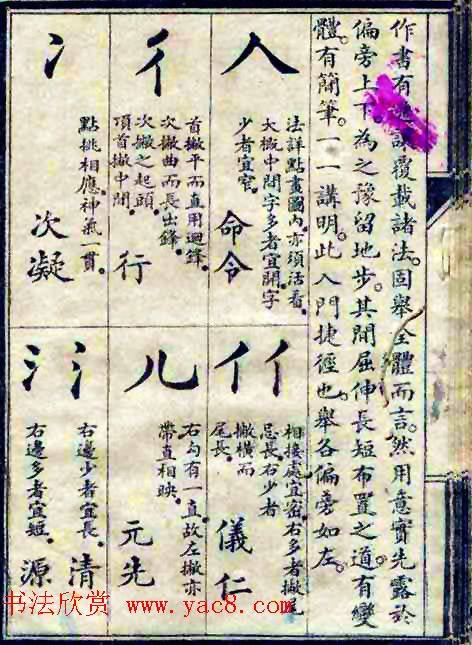 作書有讓覆載諸法。固舉全體而言。然用意實先露於
偏旁上下。為之豫留地步。其間屈伸長短布置之道。有變
體。有簡筆。一一講明。此入門捷徑也。舉各偏旁如左。
人
法詳點畫圖內。亦須活看。
大撇中間字多者宜開。字
少者宜窄。
命令
彳
首撇平而直用迴鋒。
次撇曲而長出鋒。
次撇之起頭。
頂首撇中間。
行
冫
點挑相應。神氣一貫。
次凝
亻亻
相接處宜密右多者撇尾
忌長右少者
撇橫而
尾長。
儀仁
儿
右勾有一直。故左撇亦
帶直相映。
元先
氵氵
右邊少者宜長。
清
右邊多者宜短。
源
书法欣赏 www.yac8.com